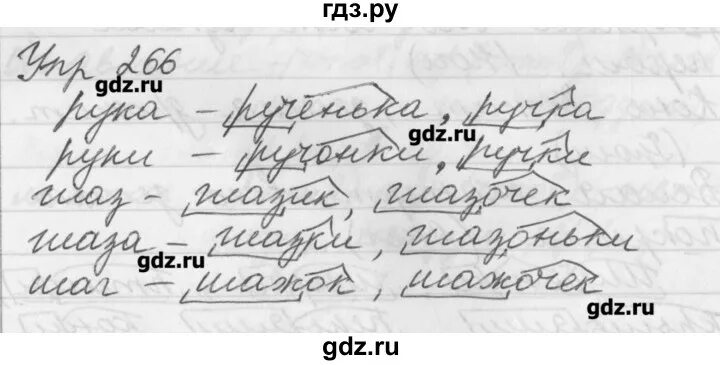 гдз.ру
Упр 266
gdz.ru
рука – рученька, ручка
gdz.ru
руки – ручонки, ручки
глаз – глазик, глазочек
глаза – глазки, глазоньки
gdz.ru
шаг – шажок, шажочек
gdz.ru
gdz.ru